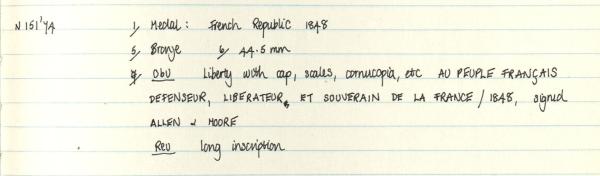 N 151'YA 1/ Medal: French Republic 1848
5/ Bronze 6/ 44.5 mm
9/ Obv Liberty with cap, scales, cornucopia, etc AU PEUPLE FRANÇAIS
DEFENSEUR, LIBERATEUR, ET SOUVERAIN DE LA FRANCE / 1848, signed
ALLEN & MOORE
Rev long inscription